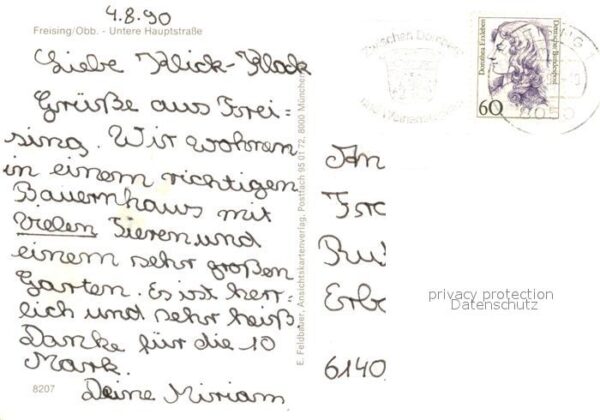 4.8.90
Freising/Obb. - Untere Hauptstraße
Liebe Klick-Klack
Grüße aus Frei=
sing. Wir wohnen
in einem richtigen
Bauernhaus mit
vielen Tieren und
einem sehr großen
Garten. Es ist herr=
lich und sehr heiß.
Danke für die 10
Mark.
Deine Miriam
8207
E. Feldbauer, Ansichtskartenverlag, Postfach 95 01 72, 8000 München
Dorothea Erxleben
Deutsche Bundespost
60
An
Erbe
6140
privacy protection
Datenschutz